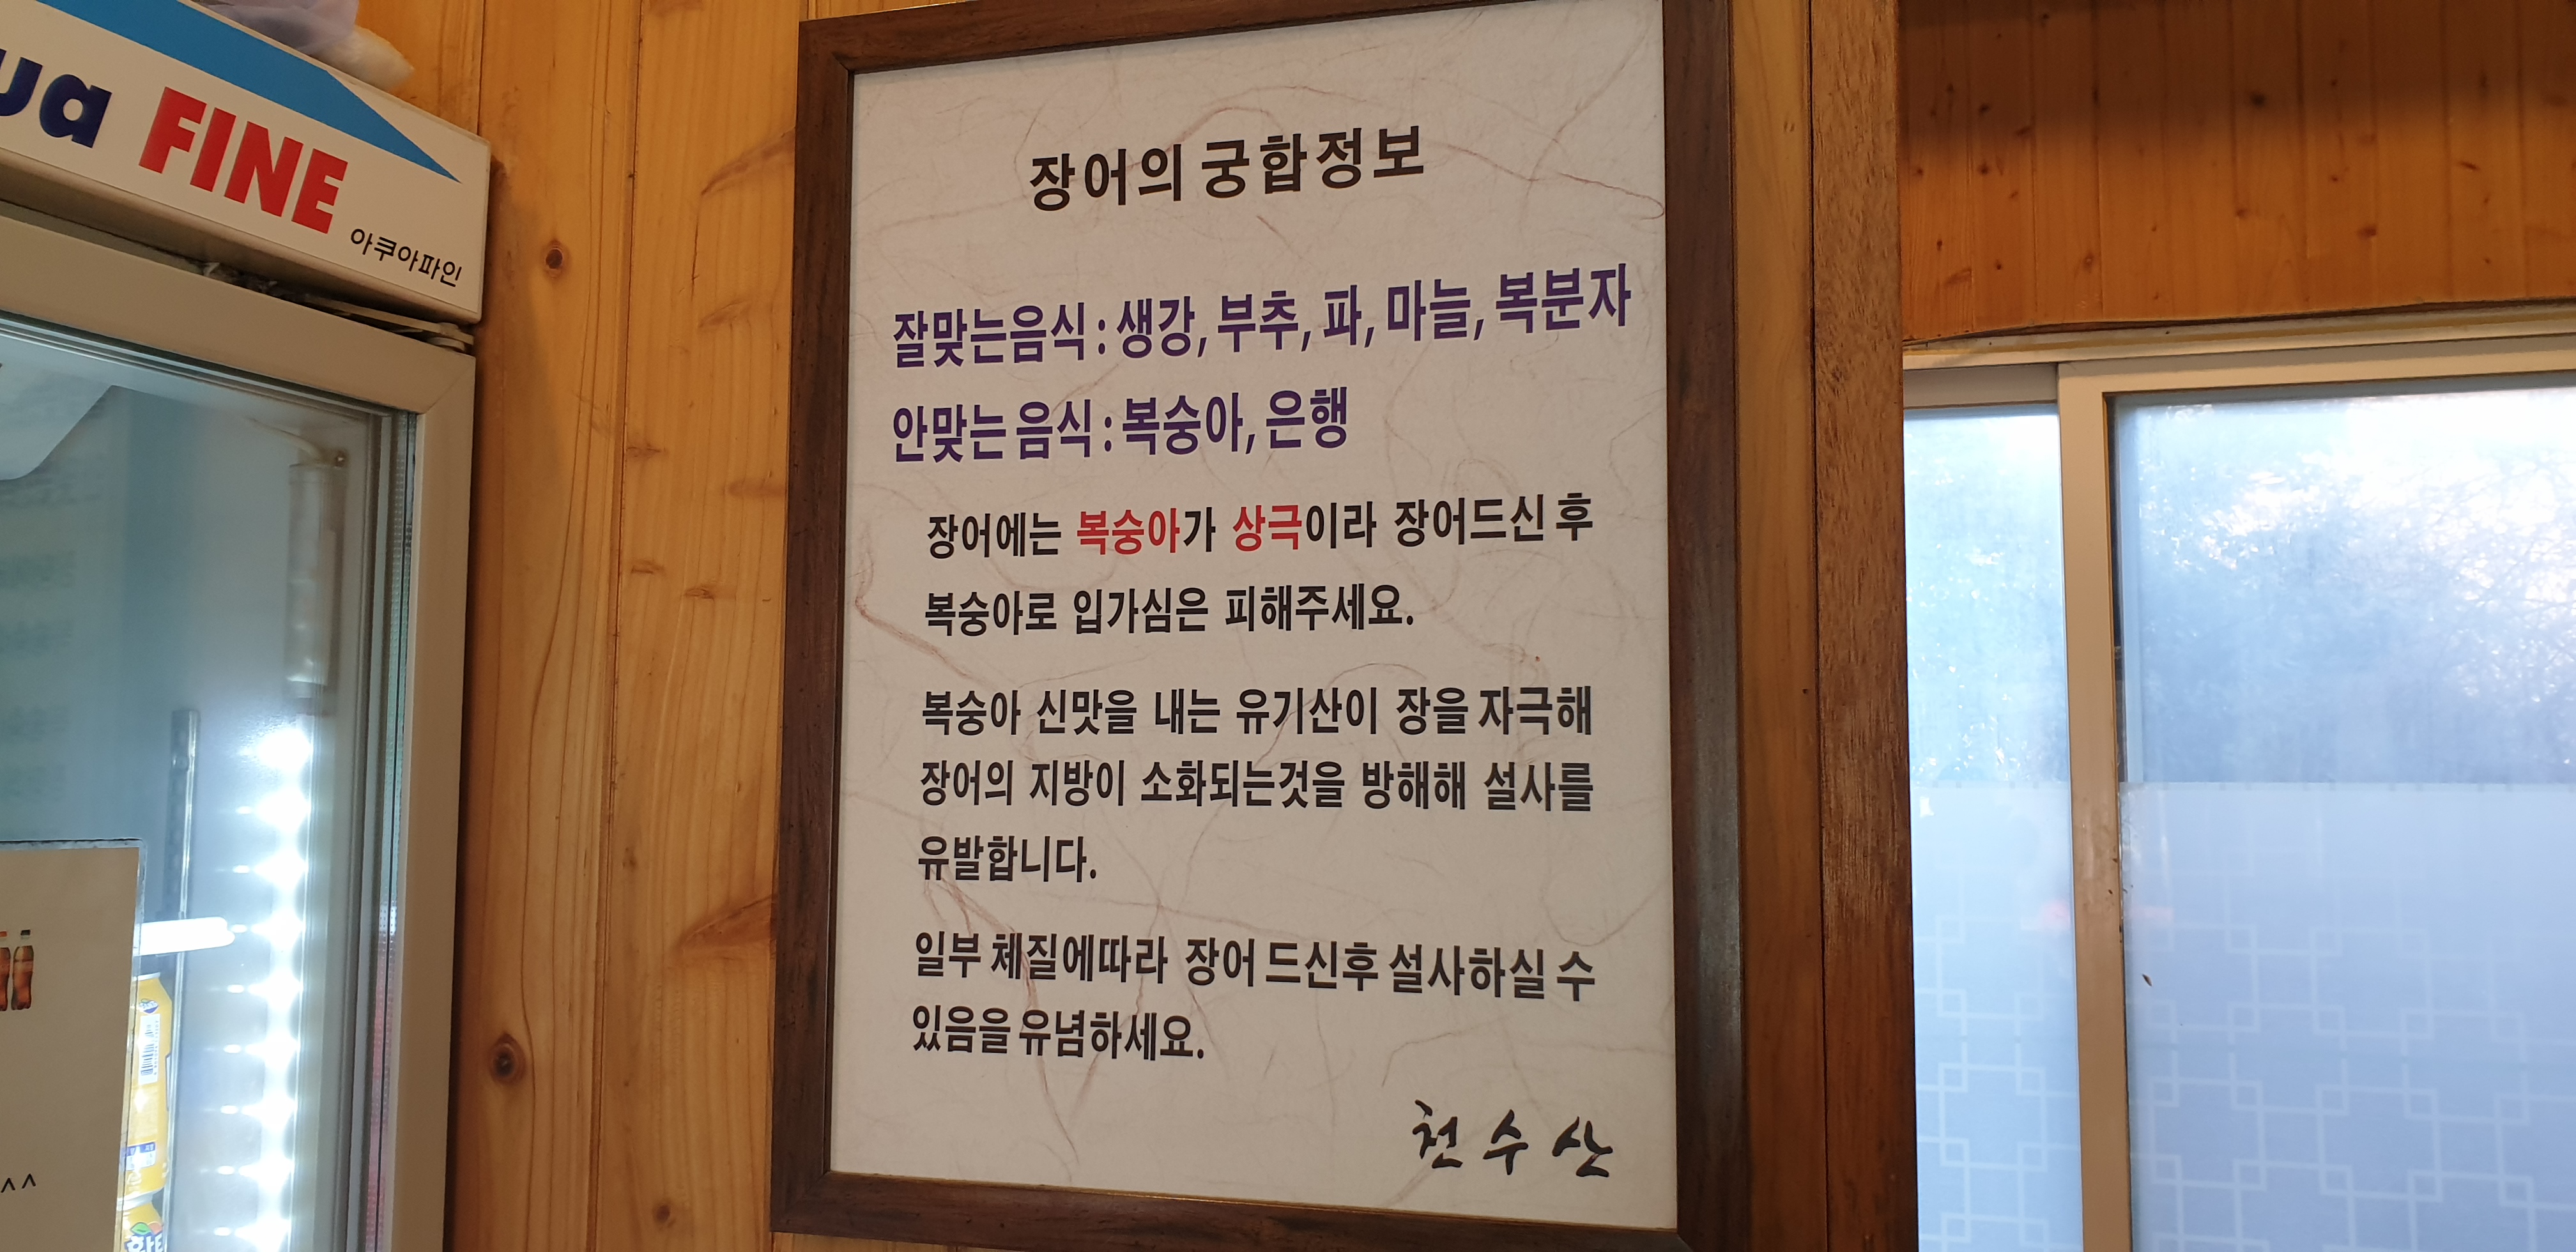 FINE
아쿠아파인
장어의 궁합정보
잘맞는음식 : 생강, 부추, 파, 마늘, 복분자
안맞는 음식 : 복숭아, 은행
장어에는 복숭아가 상극이라 장어드신 후
복숭아로 입가심은 피해주세요.
복숭아 신맛을 내는 유기산이 장을 자극해
장어의 지방이 소화되는것을 방해해 설사를
유발합니다.
일부 체질에따라 장어 드신후 설사하실 수
있음을 유념하세요.
천수산
^^